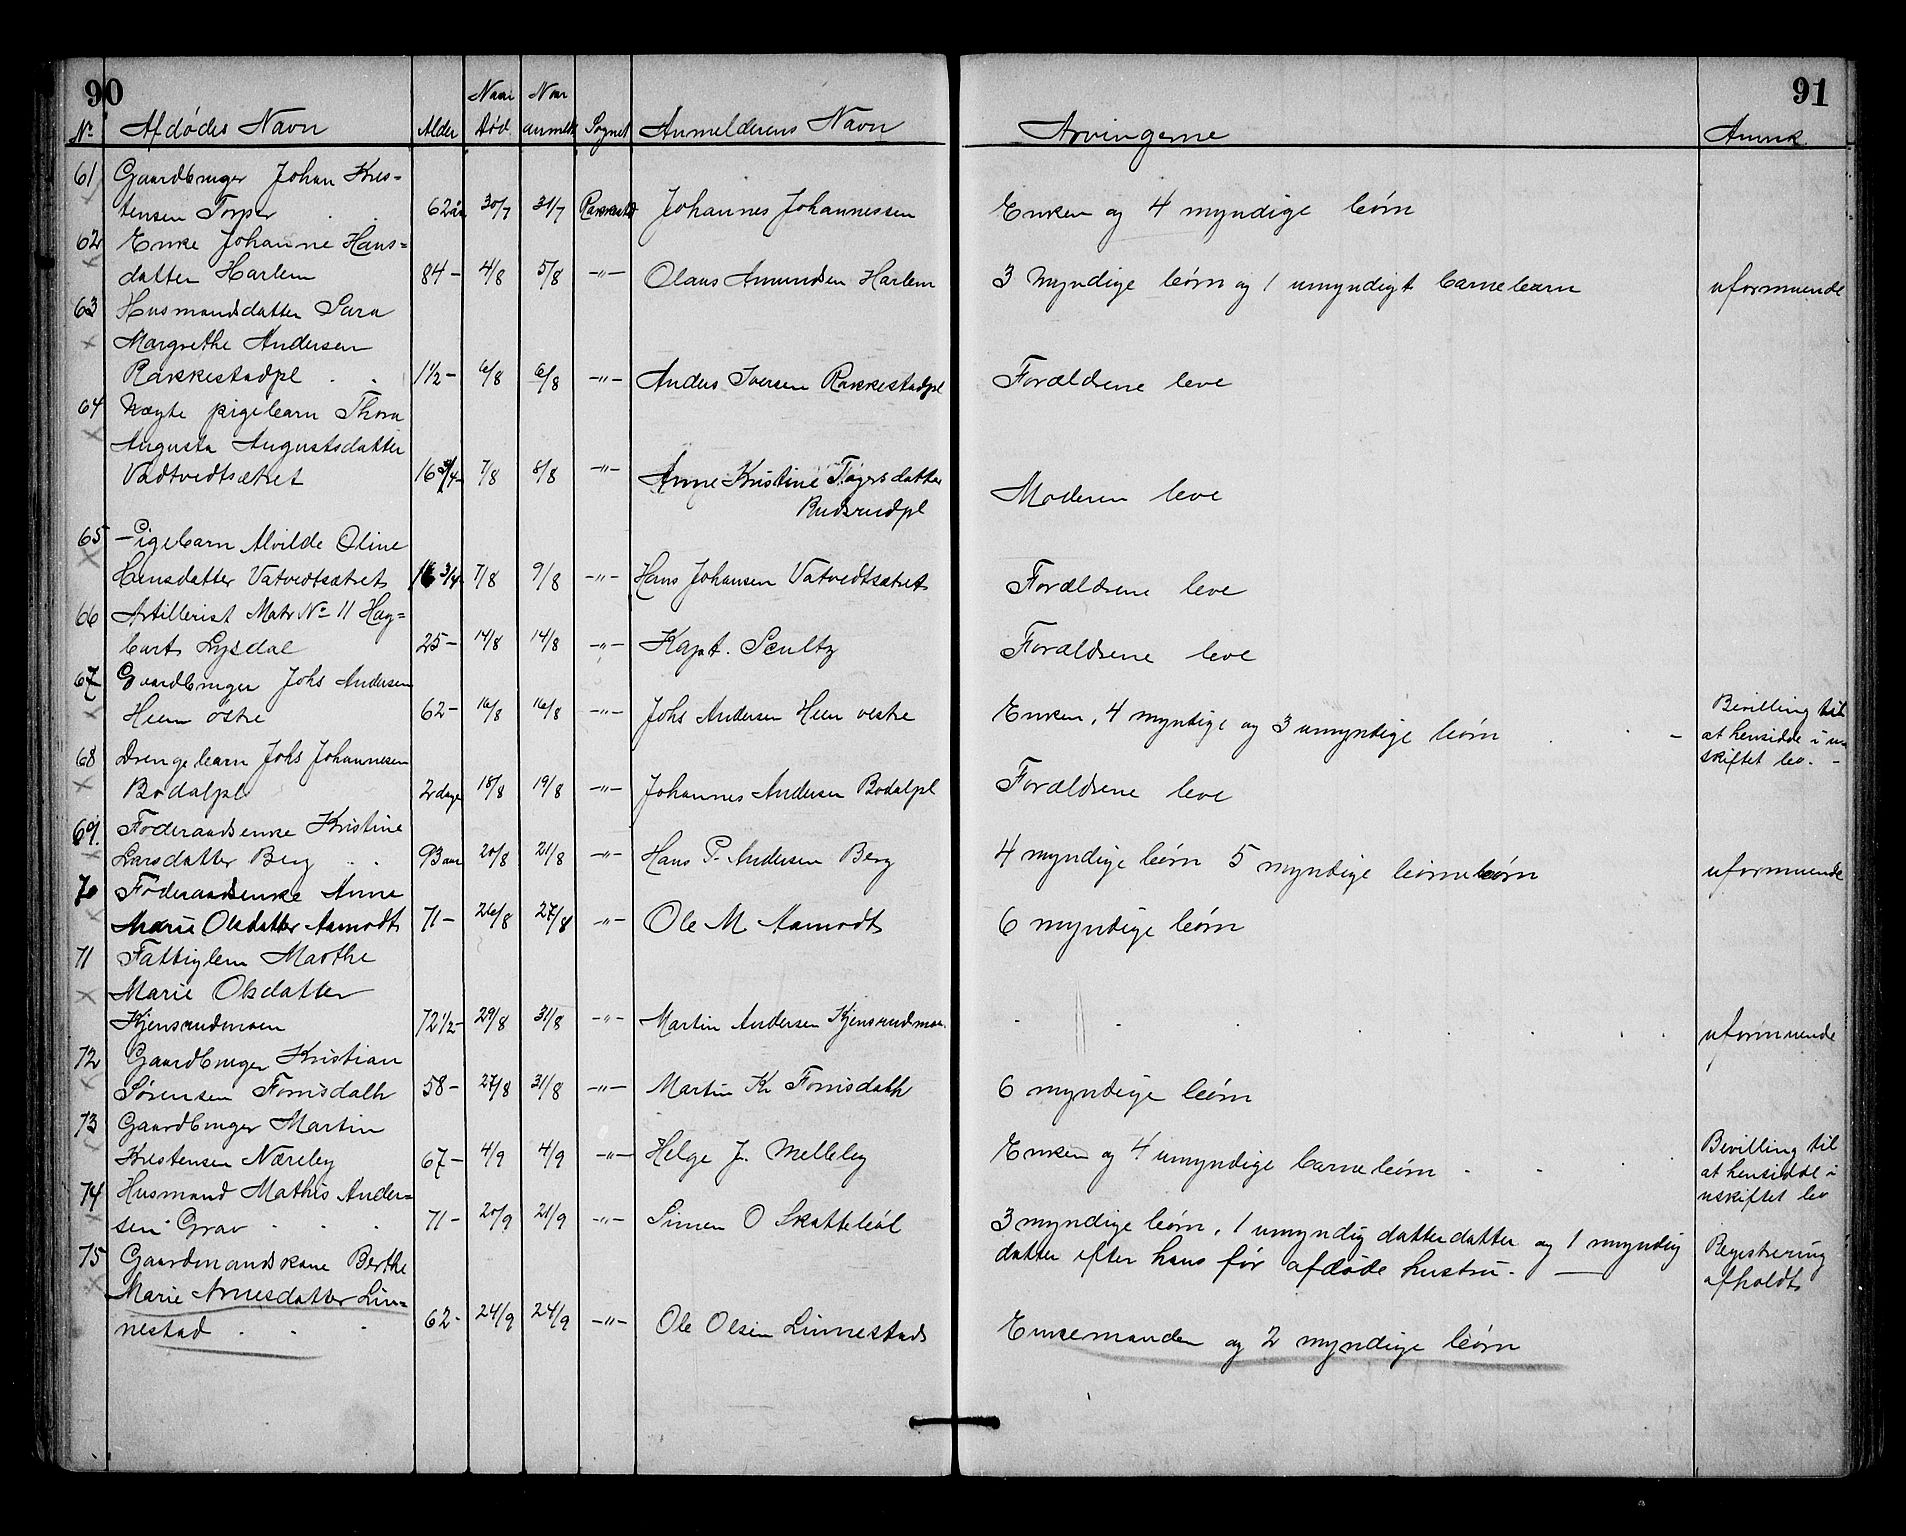 90
91
No Afdødes Navn Alder Naar død Naar anmeldt Sognet Anmelderens Navn Arvingerne Anmk.
61 Gaardbruger Johan Kris=
tensen Torper 62 aar 30/7 31/7 Rakkestad Johannes Johannessen Enken og 4 myndige børn
62 Enke Johanne Hans=
datter Harlem 84 - 4/8 5/8 -"- Olaus Amundsen Harlem 3 myndige børn og 1 umyndigt barnebarn uformuende
63 Husmandsdatter Sara
Margrethe Andersen
Rakkestadpl 1 1/2 - 6/8 6/8 -"- Anders Iversen Rakkestadpl Forældrene leve
64 Uægte pigebarn Thora
Augusta Augustsdatter
Vadtvedtsætret 16 3/4 7/8 8/8 -"- Anne Kristine Tøgersdatter
Budsrudpl Moderen leve
65 Pigebarn Alvilde Oline
Hansdatter Vatvedtsætret 16 3/4 7/8 9/8 -"- Hans Johansen Vatvedtsætret Forældrene leve
66 Artillerist Matr No 11 Hag=
bart Lysdal 25 - 14/8 14/8 -"- Kapt. Scultz Forældrene leve
67 Gaardbruger Johs Andersen
Heen østre 62 - 16/8 16/8 -"- Johs Andersen Heen vestre Enken, 4 myndige og 3 umyndige børn - Bevilling til
at hensidde i u=
skiftet bo. -
68 Drengebarn Johs Johannesen
Bodalpl 2 dage 18/8 19/8 -"- Johannes Andersen Bodalpl Forældrene leve
69. Føderaadsenke Kristine
Larsdatter Berg 93 aar 20/8 21/8 -"- Hans P. Andersen Berg 4 myndige børn 5 myndige børnebørn uformuende
70 Føderaadsenke Anne
Marie Olsdatter Aamodt 71 - 26/8 27/8 -"- Ole M Aamodt 6 myndige børn
71 Fattiglem Marthe
Marie Olsdatter
Kjensrudmoen 72 1/2 - 29/8 31/8 -"- Martin Andersen Kjensrudmoen uformuende
72 Gaardbruger Kristian
Sørensen Fornsdalh 58 - 27/8 31/8 -"- Martin Kr Fornsdalh 6 myndige børn
73 Gaardbruger Martin
Kristensen Næreby 67 - 4/9 4/9 -"- Helge J. Melleby Enken og 4 umyndige barnebørn Bevilling til
at hensidde i
uskiftet bo
74 Husmand Mathis Ander=
sen Grav 71 - 20/9 21/9 -"- Simen O Skattebøl 3 myndige børn, 1 umyndig datterdatter og 1 myndig
datter efter hans før afdøde hustru. - Registrering
afholdt
75 Gaardmandskone Berthe
Marie Arnesdatter Lin=
nestad 62 - 24/9 24/9 -"- Ole Olsen Linnestad Enkemanden og 2 myndige børn